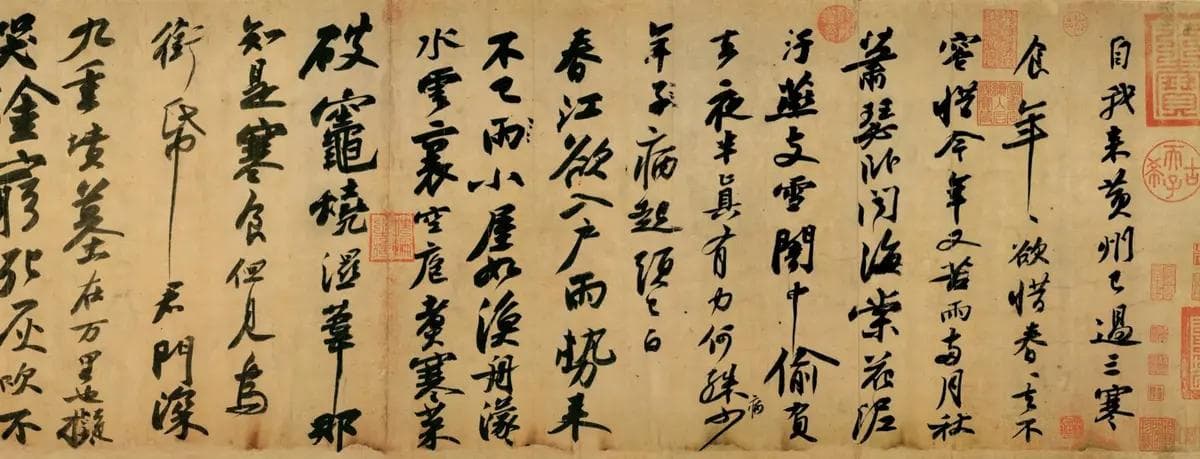 自我来黄州已過三寒
食年〻欲惜春〻去不
容惜今年又苦雨兩月秋
蕭瑟卧聞海棠花泥
汙燕支雪闇中偷負
去夜半真有力何殊少
病
年子病起須已白
春江欲入户雨勢来
不已雨小屋如漁舟濛〻
水雲裏空庖煮寒菜
破竈燒濕葦那
知是寒食但見烏
銜帋君門深
九重墳墓在万里也擬
哭塗窮死灰吹不
古希天子